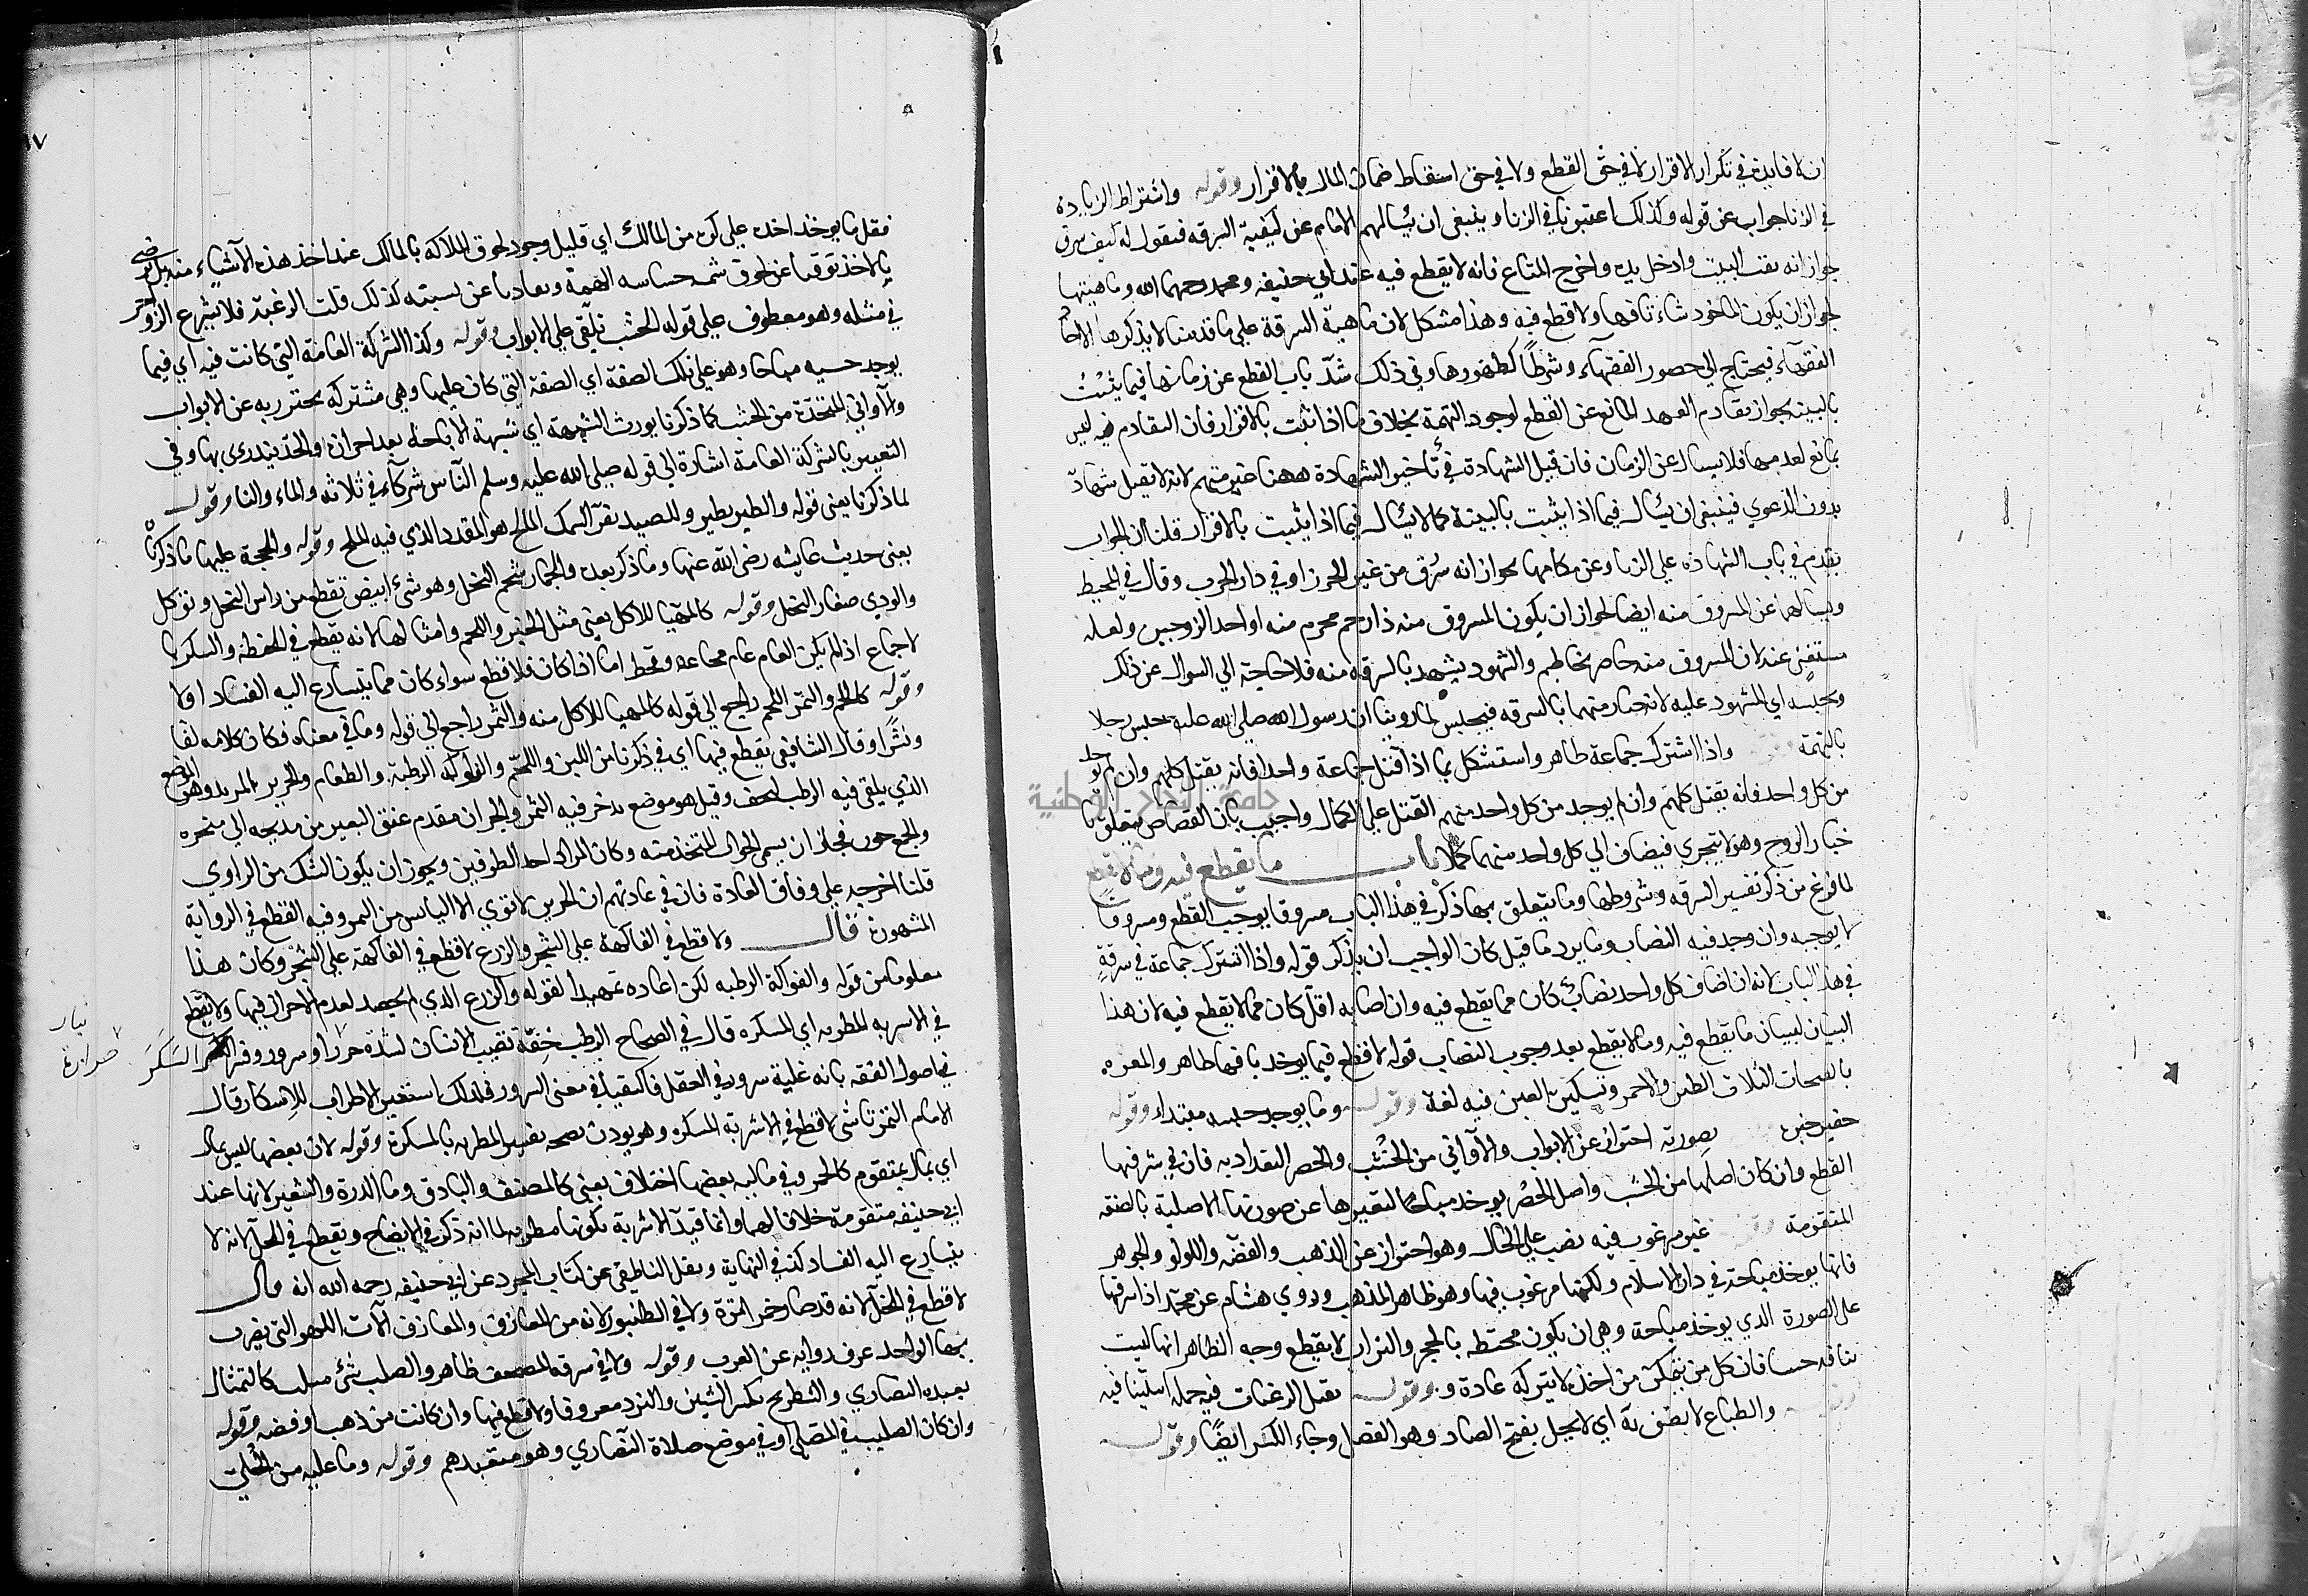 ان لا فايدة في تكرار الاقرار لا في حق القطع ولا في حق اسقاط ضمان المال بالاقرار وقوله واشتراط الزيادة
في الزنا جواب عن قوله وكذلك اعتبرنا في الزنا وينبغي ان يسالهم الامام عن كيفية السرقه فيقول له كيف سرق
جواز انه نقب البيت وادخل يده واخرج المتاع فانه لا يقطع فيه عند ابي حنيفه ومحمد رحمهما الله وماهيتها
لجواز ان يكون الماخوذ شاء تافها ولا قطع فيه وهذا مشكل لان ماهية السرقة على ما قدمنا لا يذكرها الا
الفقهاء فيحتاج الي حضور الفقهاء وشرطا كطهورها وفي ذلك شد باب القطع عن زمانها فيما يثبت
بالبينه لجواز تقادم العهد المانع عن القطع لوجود التهمة بخلاف ما اذا ثبت بالاقرار فان التقادم فيه ليس
بمانع لعدمها فلا يسال عن الزمان فان قيل الشهادة في تأخير الشهادة ههنا غير متهم لانه لا تقبل شهادة
بدون الدعوي فينبغي ان يسال فيما اذا يثبت بالبينة كما لا يسال فيما اذا يثبت بالاقرار قلنا ان الجواب
تقدم في باب الشهادة علي الزنا وعن مكانها لجواز انه سرق من غير الحرز او في دار الحرب وقال في المحيط
ويسالهما عن المسروق منه ايضا لجواز ان يكون المسروق منه ذا رحم محرم منه او احد الزوجين ولعله
مستغنى عند لان المسروق منه حاضر يخاطبهم والشهود يشهد بالسرقه منه فلا حاجة الي السوال عن ذلك
ويحبسه اي المشهود عليه لانه صار متهما بالسرقه فيحبس لما روينا ان رسول الله صلي الله عليه حبس رجلا
بالتهمة واذا اشترك جماعة ظاهر واستشكل بما اذا قتل جماعة واحدا فانه يقتل كلهم وان لم يوجد
من كل واحد فانه يقتل كلهم وان لم يوجد من كل واحد منهم القتل علي الكمال واجيب بان القصاص يتعلق با
خيار الروح وهو لا يتجزي فيضاف الي كل واحد منهما كملا باب ما يقطع فيه وما لا يقطع
لما فرغ من ذكر تفسير السرقه وشروطها وما يتعلق بها ذكر في هذا الباب مسروقا يوجب القطع ومسروقا
لا يوجبه وان وجد فيه النصاب وما يرد ما قيل كان الواجب ان يذكر قوله واذا اشترك جماعة في سرقة
في هذا الباب لانه ان اصاب كل واحد نصاب كان مما يقطع فيه وان اصابه اقل كان مما لا يقطع فيه لان هذا
البيان لبيان ما يقطع فيه وما لا يقطع بعد وجوب النصاب قوله لا قطع فيما يوجد تافها ظاهر والمغره
بالفتحات الثلاث الطين الاحمر وتسكين العين فيه لغة وقوله وما يوجد جنسه مبتدا وقوله
حقير خبره بصورته احتراز عن الابواب والاواني من الخشب والحصر البغداديه فان في سرقها
القطع وان كان اصلها من الخشب واصل الحصر يوخذ مباحا لتغيرها عن صورتها الاصلية بالصنعة
المتقومة غير مرغوب فيه نصب علي الحال وهو احتراز عن الذهب والفضه واللولو والجوهر
فانها يوخذ مباحة في دار الاسلام ولكنها مرغوب فيها وهو ظاهر المذهب وروي هشام عن محمد اذا سرقها
علي الصورة الذي يوخذ مباحة وهي ان يكون مختطه بالحجر والتراب لا يقطع وجه الظاهر انها ليست
تافه جنسا فان كل من يتمكن من اخذ لا يتركه عادة و وقوله تقل الرغبات فيه جمله استينافيه
والطباع لا يضن به اي لا يبخل بفتح الضاد وهو الفصل وجاء الكسر ايضا وقوله
فقل ما يوخذ اخذه علي كره من المالك اي قليل وجود لحوق الملاكه بالمالك عند اخذ هذه الاشياء منه بل يرضي
بالاخذ توقيا عن لحوق شمه خساسه الهمة وتعاديا عن نسبته كذلك قلت الرغبة فلا يشرع الزواجر
في مثله وهو معطوف علي قوله الخشب يلقي علي الابواب وقوله وكذا الشركة العامة التي كانت فيه اي فيما
يوجد جنسه مباحا وهو علي تلك الصفة اي الصفة التي كان عليها وهي مشتركة يحترز به عن الابواب
والاواني المتخذة من الخشب كما ذكرنا يورث الشبهة اي شبهة الاباحة بعد احرازه والحد يندري بها وفي
التعبير بالشركة العامة اشارة الي قوله صلي الله عليه وسلم الناس شركاء في ثلاثه والماء والنار وقوله
لما ذكرنا يعني قوله والطير يطير والصيد يفر السمك المالح هو المقدد الذي فيه الملح وقوله والحجة عليهما ما ذكرنا
يعني حديث عايشه رضي الله عنها وما ذكر بعده والجمار شحم النخل وهو شيء ابيض تقطع من راس النخل وتوكل
والودي صغار النخل وقوله كالمهيا للاكل يعني مثل الخبز واللحم وامثالها لانه يقطع في الحنطة والسكر بالا
لاجماع اذا لم يكن العام عام مجاعه وقحط اما اذا كان فلا قطع سواء كان مما يتسارع اليه الفساد او لا
وقوله كاللحم والتمر اللحم راجع الي قوله كالمهيا للاكل منه والتمر راجع الي قوله وما في معناه فكان كلامه لفا
ونشرا وقال الشافعي يقطع فيها اي في ذكرنا من اللبن واللحم والفواكه الرطبة والطعام والجرين المربد وهو الموضع
الذي يلقي فيه الرطب ليجف وقيل هو موضع يدخر فيه التمر والجران مقدم عنق البعير من مذبحه الي منحره
والجمع جرن فجاز ان يسمي الجوال المتخذ منه وكان المراد احد الظرفين ويجوز ان يكون الشك من الراوي
قلنا اخرجه علي وفاق العادة فان في عادتهم ان الجرين لا توي الا اليابس من التمر وفيه القطع في الرواية
المشهورة قال ولا قطع في الفاكهة علي الشجر والزرع لا قطع في الفاكهة علي الشجر وكان هذا
معلوما من قوله والفواكة الرطبه لكن اعاده تمهيدا لقوله والزرع الذي لم يحصد لعدم الاحراز فيها ولا يقطع
في الاشربه المطربه اي المسكره قال في الصحاح الطرب خفة تصيب الانسان لشدة حزن او سرور وفسر السكر
في اصول الفقه بانه غلبة سرور في العقل فالتقيا في معني السرور فلذلك استعير الاطراب للاسكار قال
الامام التمرتاشي لا قطع في الاشربة المسكرة وهو يوذن بصحه تفسير المطربه بالمسكرة وقوله لان بعضها ليس بمال
اي بمال متقوم كالخمر وفي مالية بعضها اختلاف يعني كالمنصف والباذق وما الذرة والشعير لانها عند
ابي حنيفه متقومة خلافا لهما وانما قيد الاشربة بكونها مطربه لما انه ذكر في الايضاح ويقطع في الخل لانه لا
يتسارع اليه الفساد كذا في النهاية ونقل الناطفي عن كتاب المجرد عن ابي حنيفه رحمه الله انه قال
لا قطع في الخل لانه قد صار خمر امرة ولا في الطنبور لانه من المعازف والمعازف الات اللهو التي يضرب
بها الواحد عرف رواية عن العرب وقوله ولا في سرقه المصحف ظاهر والصليب شيء مثلث كالتمثال
يعبده النصاري والشطرنج بكسر الشين والنرد معروفا ولا قطع فيها وان كانت من ذهب او فضه وقوله
وان كان الصليب في المصلي اي في موضع صلاة النصاري وهو متعبدهم وقوله وما عليه من الحلي
جامعة النجاح الوطنية